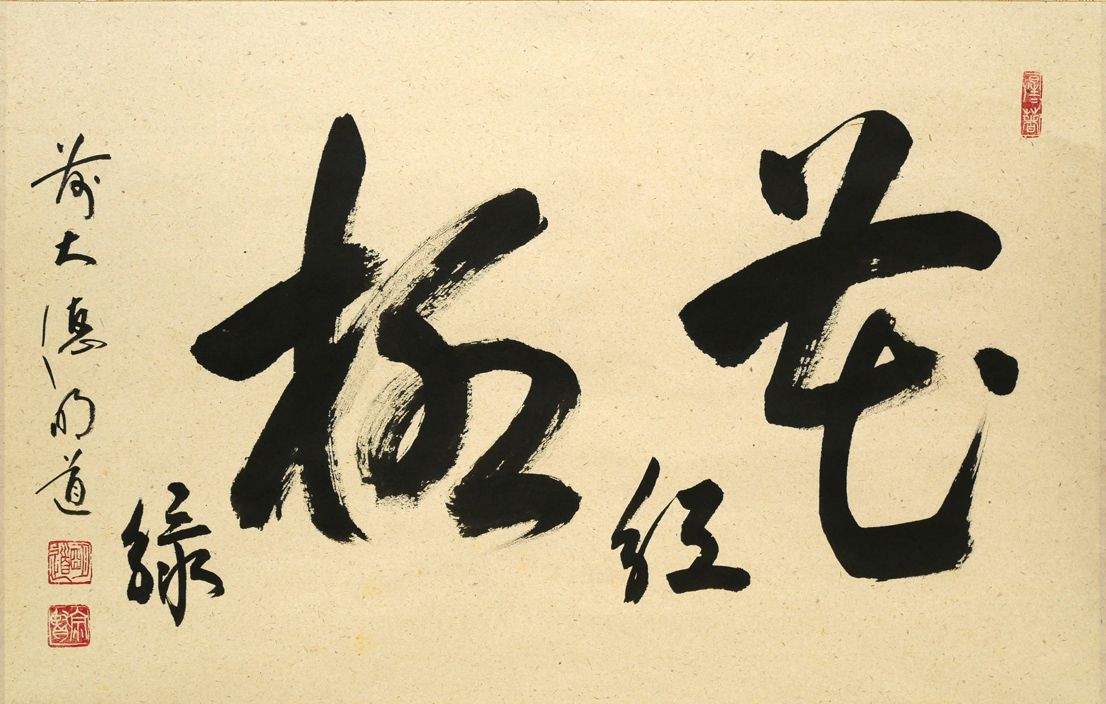 花紅
柳緑
前大徳明道